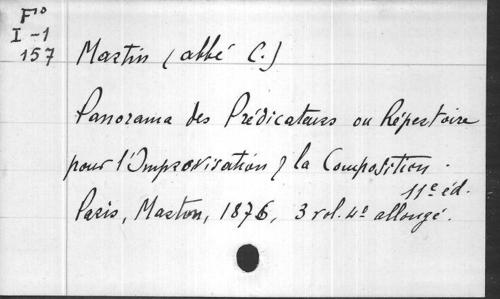 Fº
I-1
157
Martin (abbé C.)
Panorama des Prédicateurs ou Répertoire
pour l'Improvisation & la Composition.
11e éd.
Paris, Marton, 1876, 3 vol. 4º allongé.